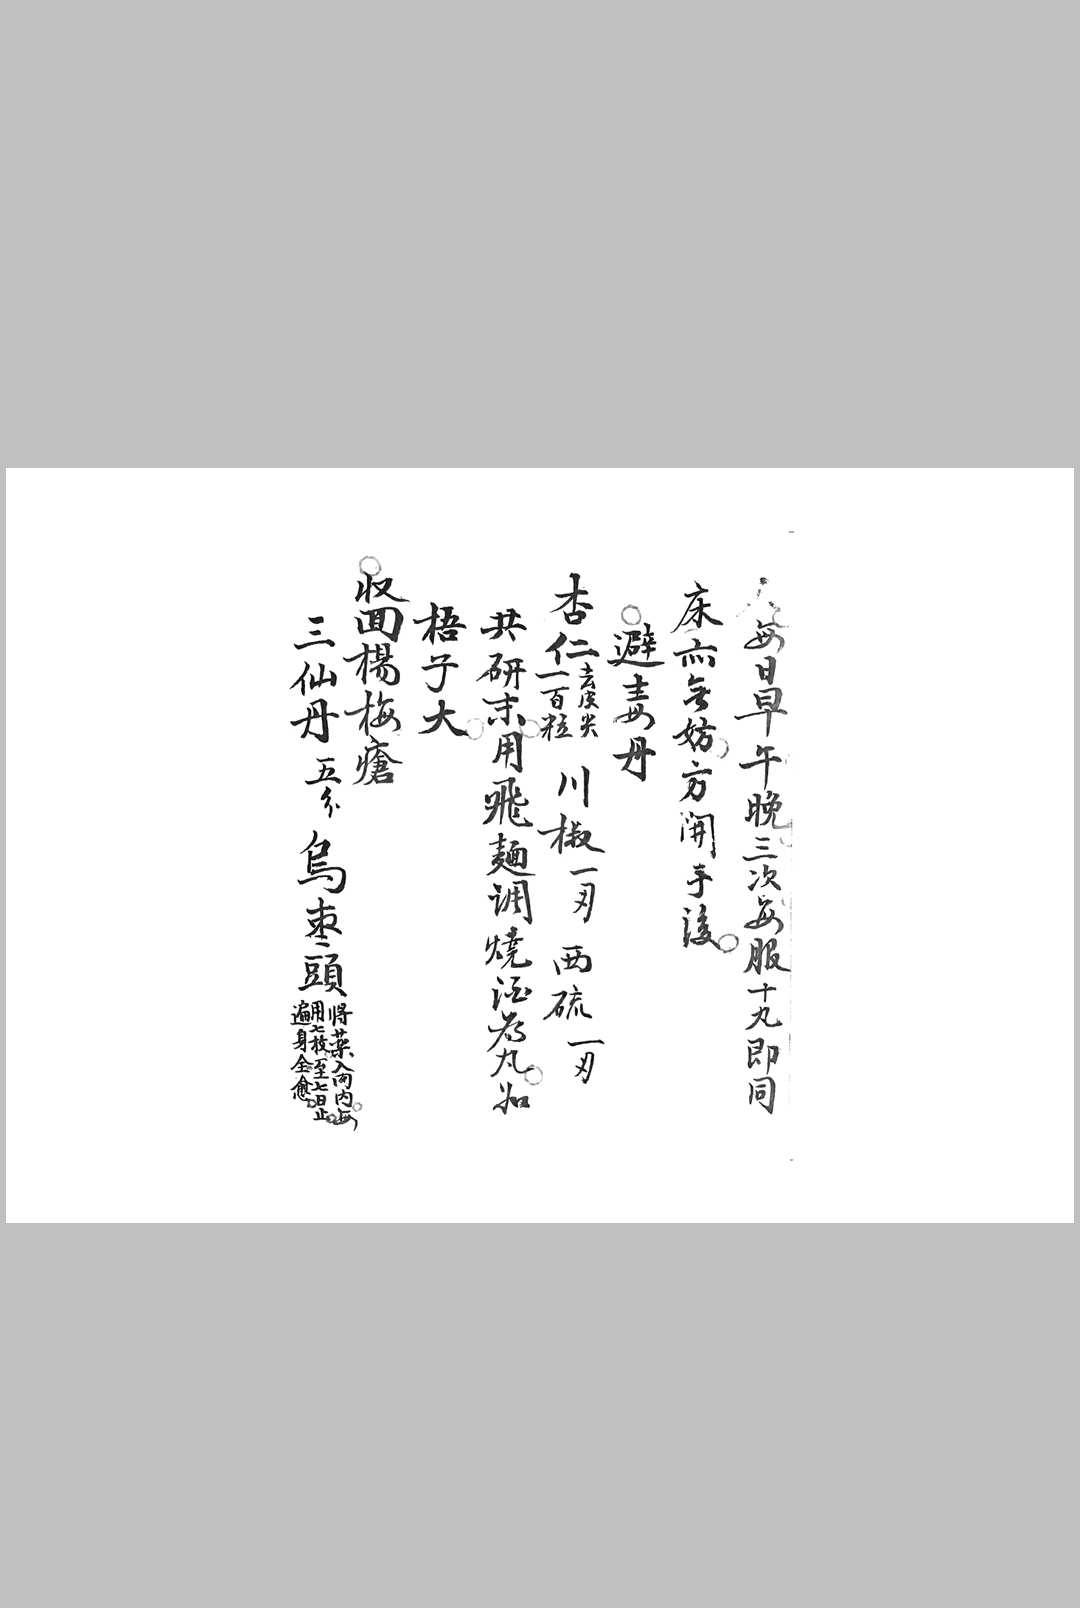 大每日早午晚三次每服十丸即同
床亦無妨方開手後
避毒丹
杏仁去皮尖一百粒 川椒一刄 西硫一刄
共研末用飛麵調燒酒為丸如
梧子大
収回楊梅瘡
三仙丹五分 烏枣頭將藥入肉内每用七枚至七日止遍身全愈